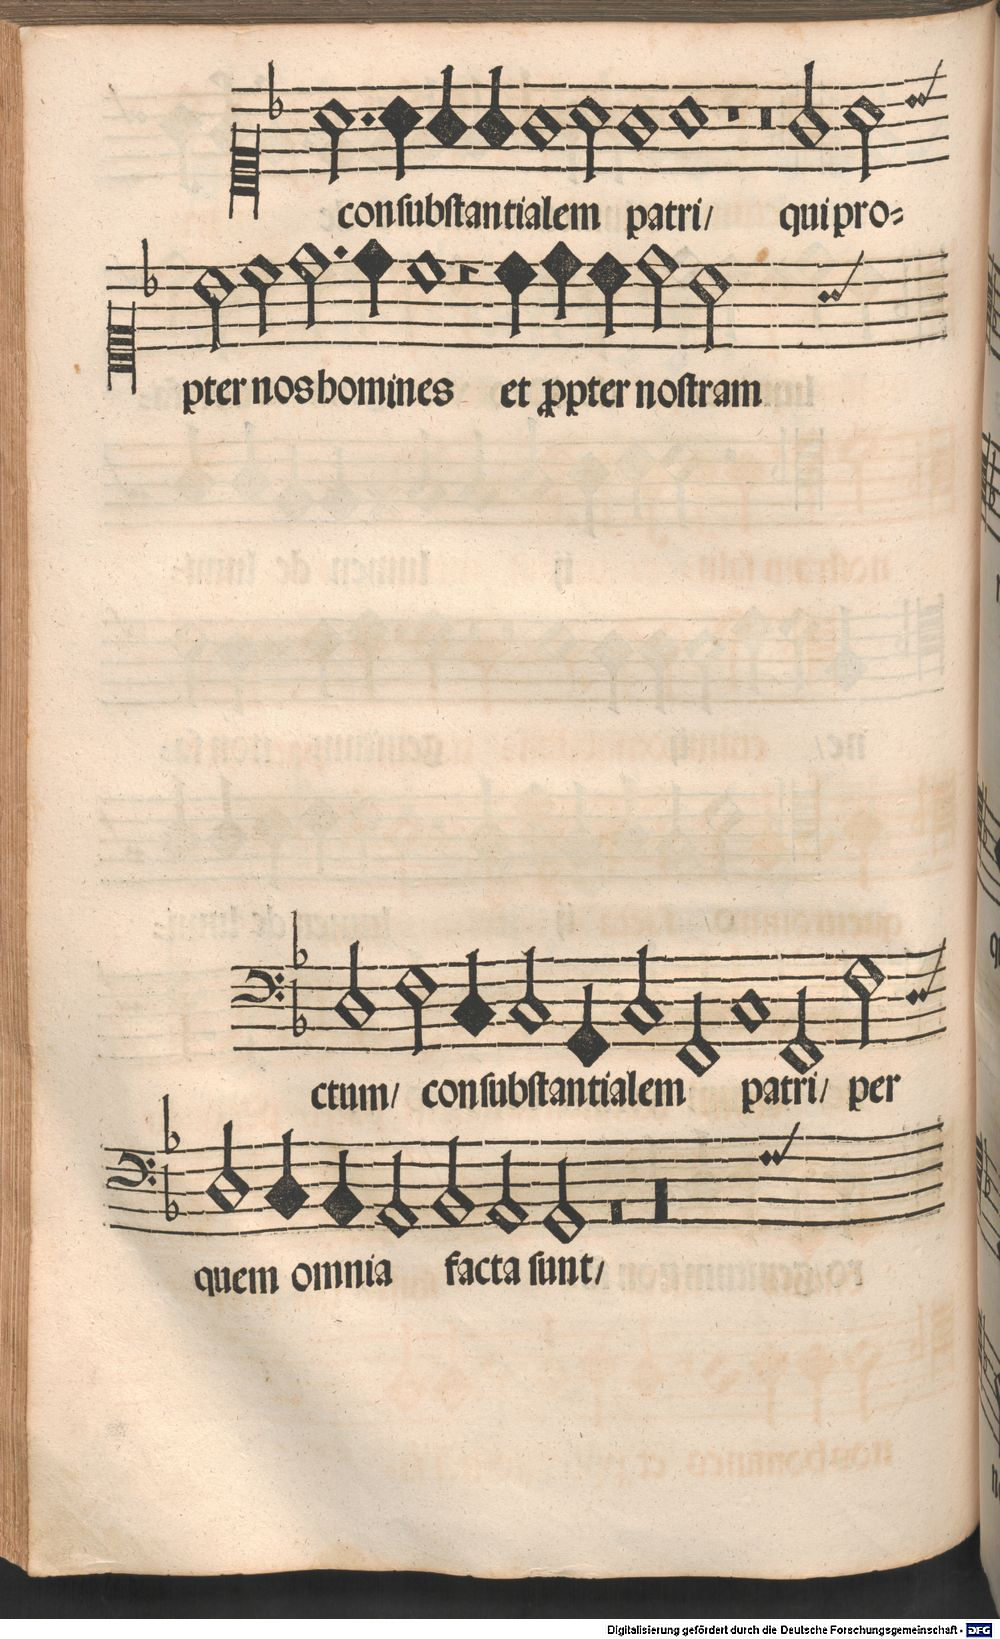 conſubſtantialem patri/ qui pro⸗
pter nos homines et ꝓpter noſtram
ctum/ conſubſtantialem patri/ per
quem omnia facta ſunt/
Digitalisierung gefördert durch die Deutsche Forschungsgemeinschaft - DFG